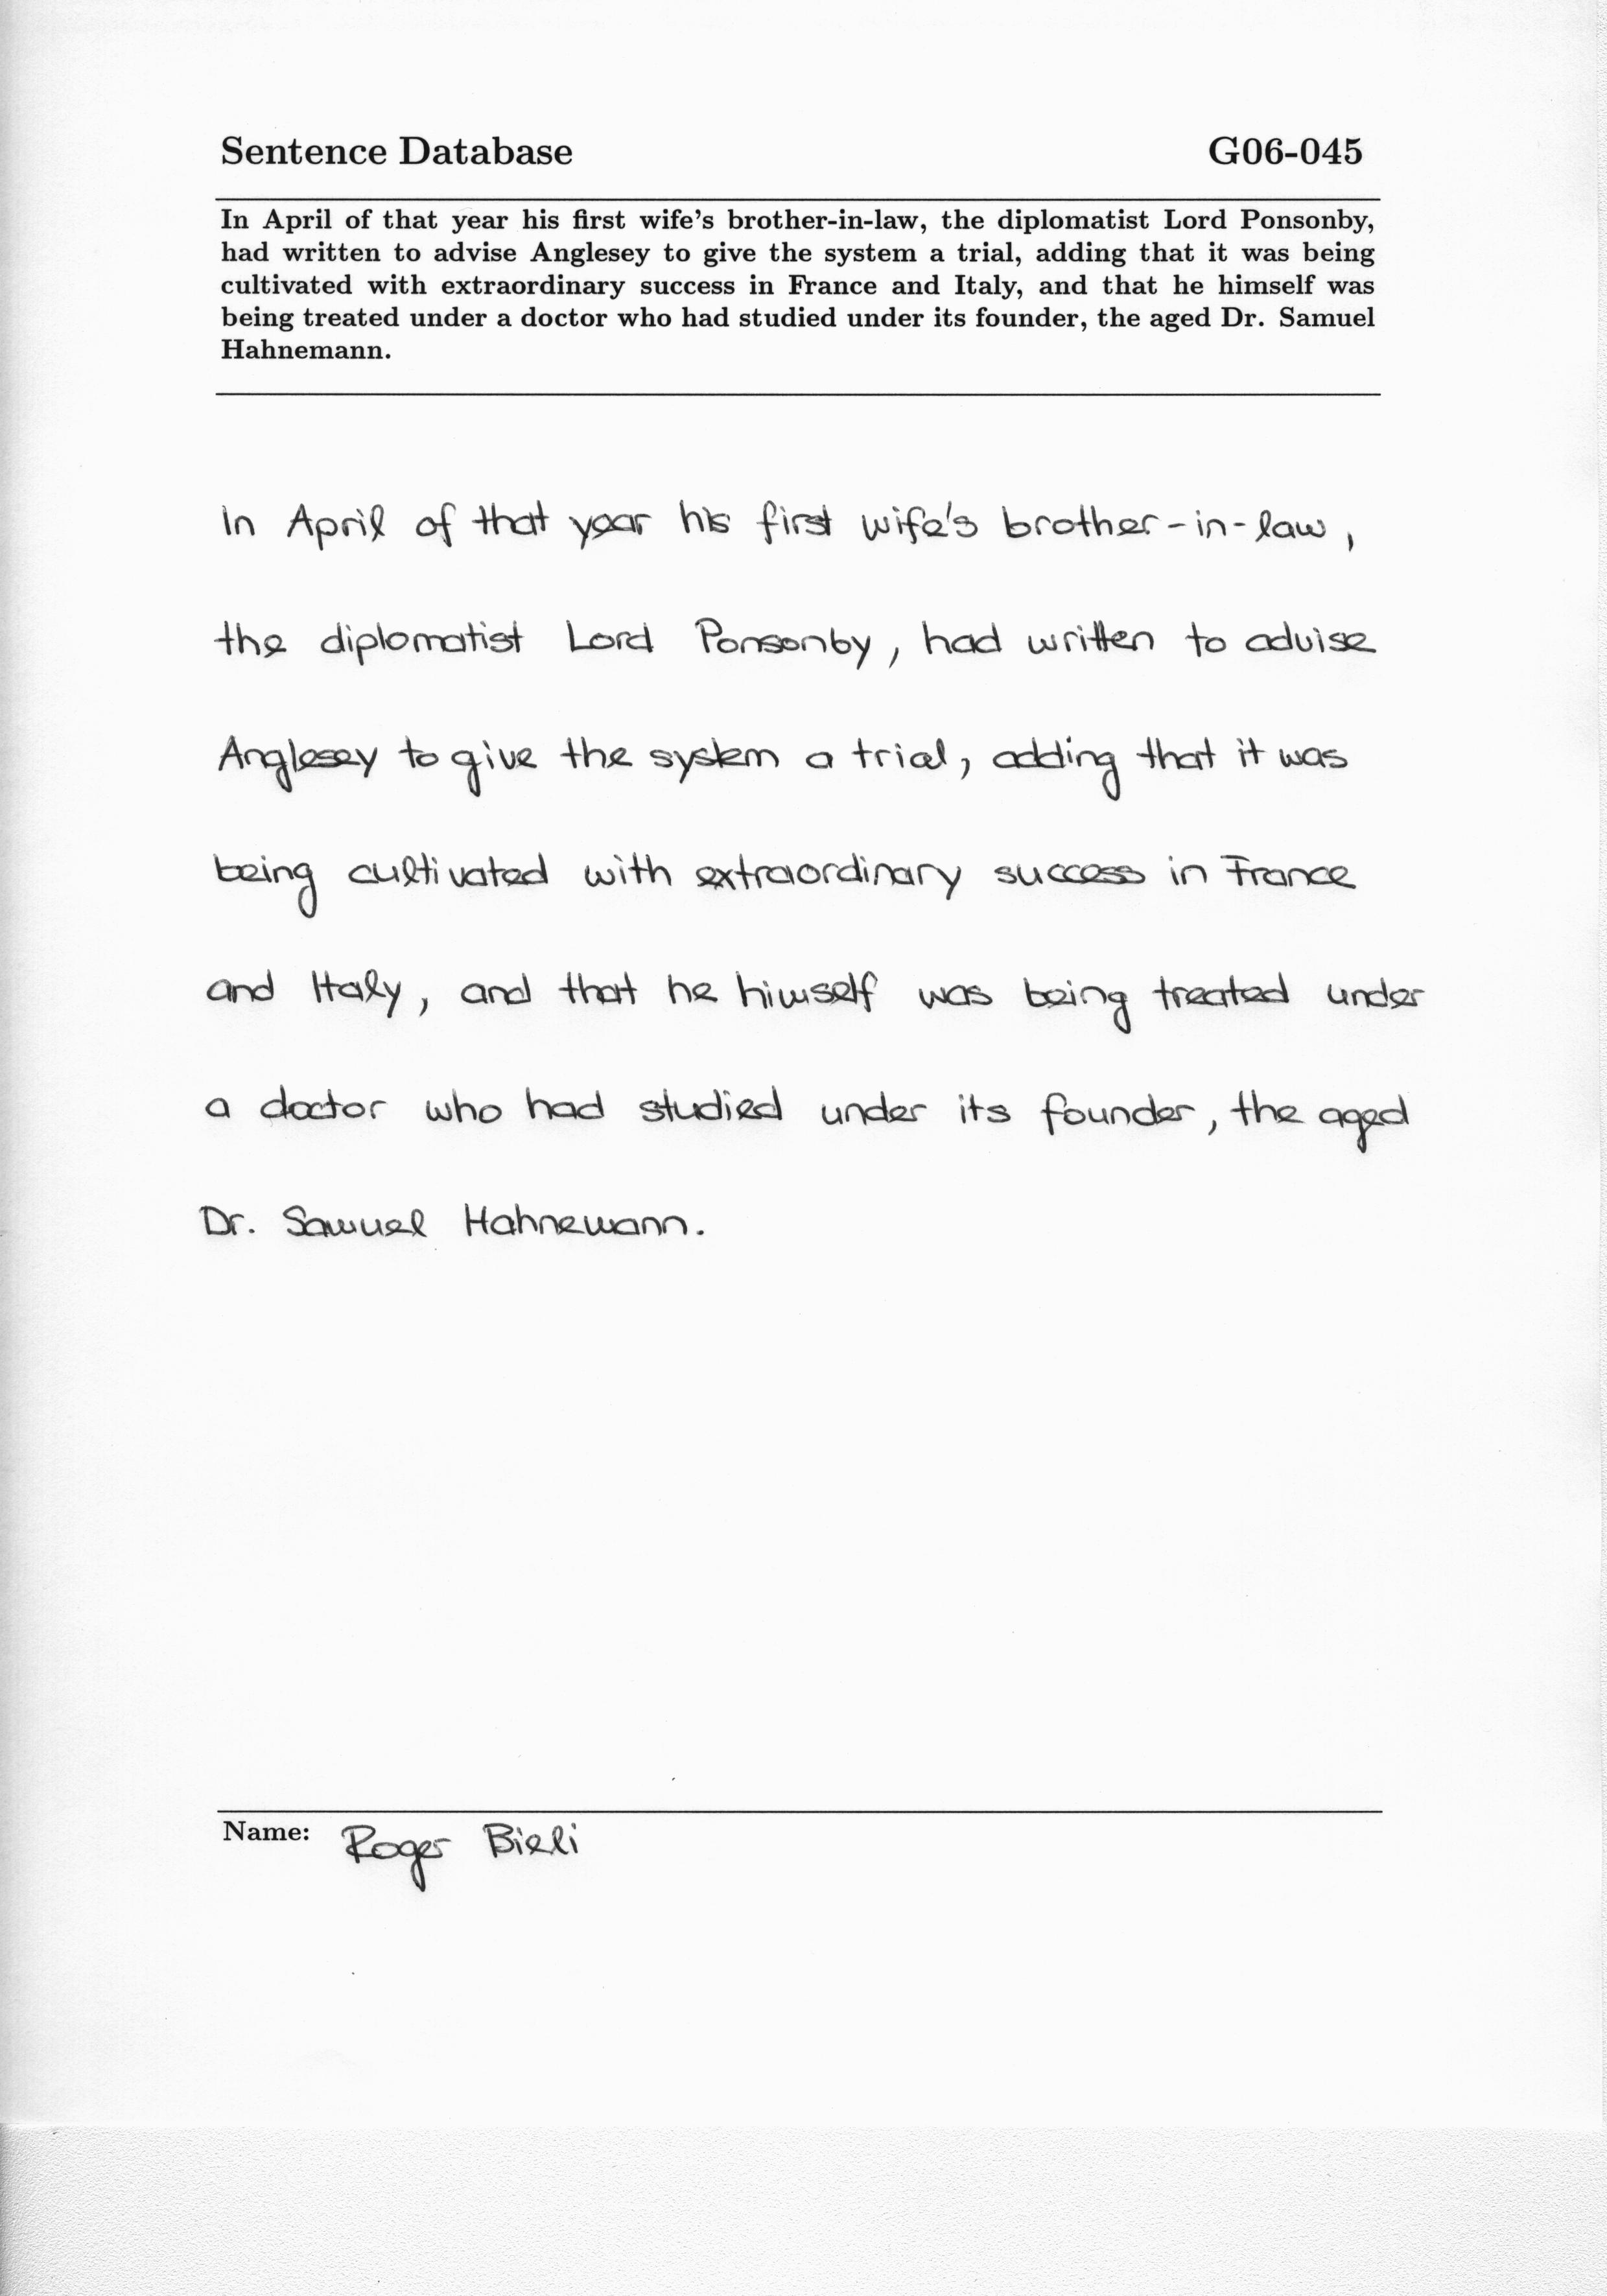 Sentence Database G06-045
In April of that year his first wife's brother-in-law, the diplomatist Lord Ponsonby,
had written to advise Anglesey to give the system a trial, adding that it was being
cultivated with extraordinary success in France and Italy, and that he himself was
being treated under a doctor who had studied under its founder, the aged Dr. Samuel
Hahnemann.
In April of that year his first wife's brother-in-law,
the diplomatist Lord Ponsonby, had written to advise
Anglesey to give the system a trial, adding that it was
being cultivated with extraordinary success in France
and Italy, and that he himself was being treated under
a doctor who had studied under its founder, the aged
Dr. Samuel Hahnemann.
Name: Roger Bieli